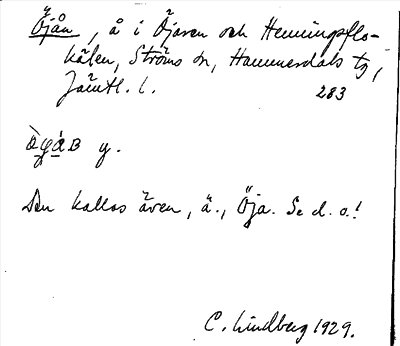 Öjån, å i Öjaren och Henningsflo-
kälen, Ströms sn, Hammerdals tg,
Jämtl. l.
283
y.
Den kallas även, ä., Öja. Se d. o.!
C. Lindberg 1929.